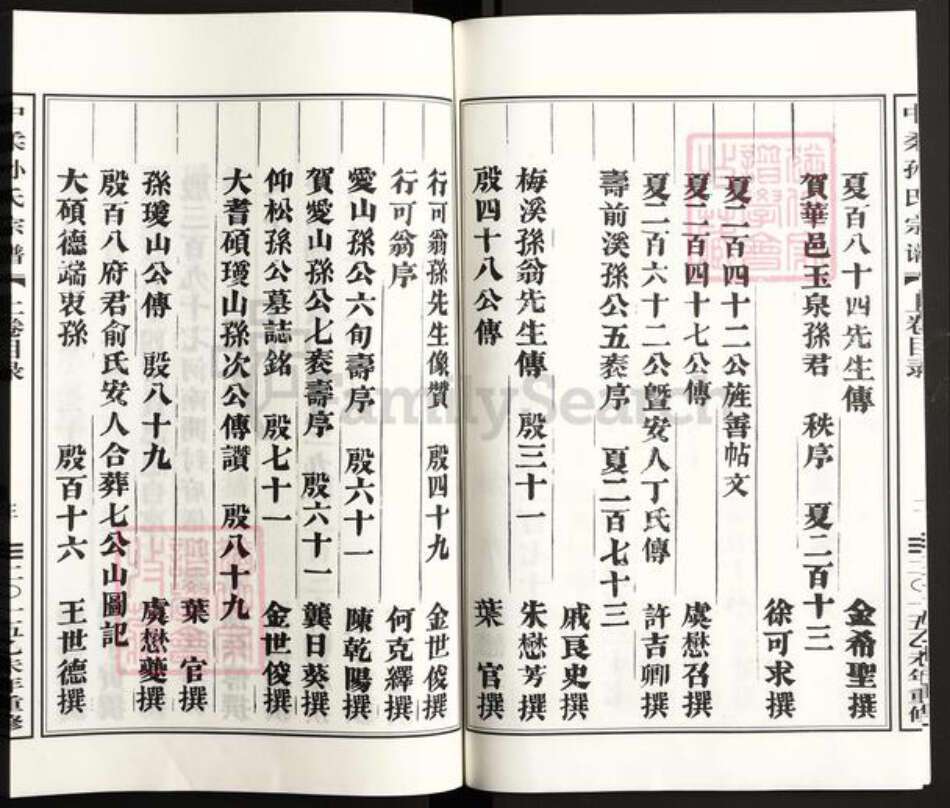 夏百八十四先生傳　金希聖撰
賀華邑玉泉孫君　秩序　夏二百十三
徐可求撰
夏二百四十二公旌善帖文
夏二百四十七公傳　虞懋召撰
夏二百六十二公曁安人丁氏傳　許吉卿撰
壽前溪孫公五袠序　夏二百七十三
戚艮史撰
梅溪孫翁先生傳　殷三十一　朱懋芳撰
殷四十八公傳　葉　官撰
行可翁孫先生像贊　殷四十九　金世俊撰
行可翁序　何克繹撰
愛山孫公六旬壽序　殷六十一　陳乾陽撰
賀愛山孫公七袠壽序　殷六十一　龔日葵撰
仰松孫公墓誌銘　殷七十一　金世俊撰
大耆碩瓊山孫次公傳讚　殷八十九
葉　官撰
孫瓊山公傳　殷八十九　虞懋夔撰
殷百八府君俞氏安人合葬七公山圖記
大碩德端衷孫　殷百十六　王世德撰
中柔孙氏宗谱
上卷目录
三
二〇一五乙未年重修
FamilySearch